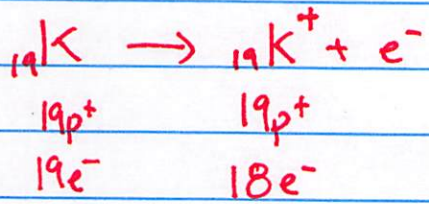 ₁₉K → ₁₉K⁺ + e⁻
19p⁺ 19p⁺
19e⁻ 18e⁻